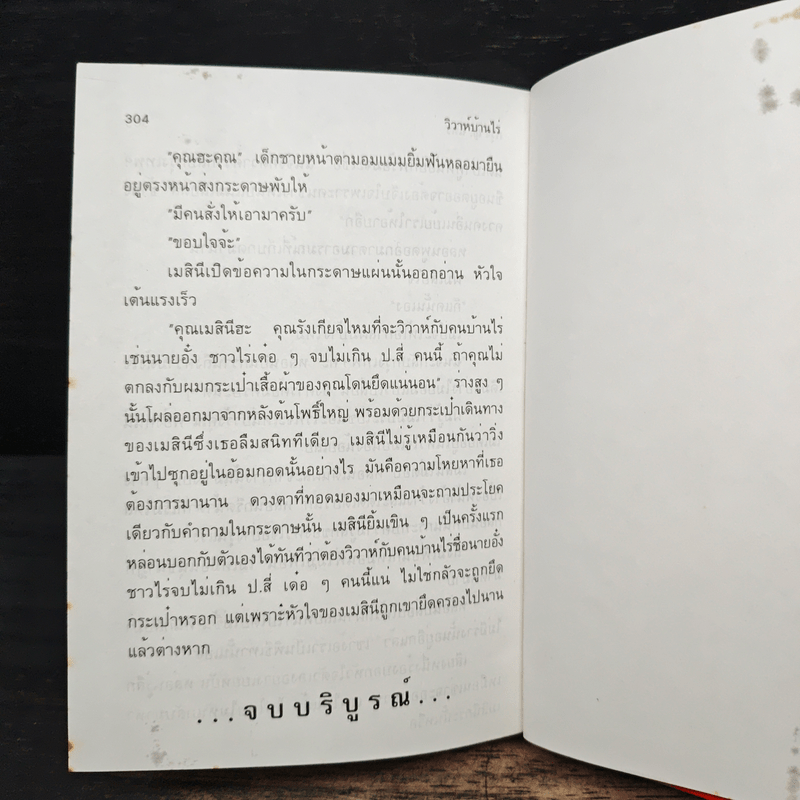 304
วิวาห์บ้านไร่
"คุณฮะคุณ" เด็กชายหน้าตามอมแมมยิ้มฟันหลอมายืน
อยู่ตรงหน้าส่งกระดาษพับให้
"มีคนสั่งให้เอามาครับ"
"ขอบใจจ้ะ"
เมสินีเปิดข้อความในกระดาษแผ่นนั้นออกอ่าน หัวใจ
เต้นแรงเร็ว
"คุณเมสินีฮะ คุณรังเกียจไหมที่จะวิวาห์กับคนบ้านไร่
เช่นนายอั๋ง ชาวไร่เด๋อ ๆ จบไม่เกิน ป.สี่ คนนี้ ถ้าคุณไม่
ตกลงกับผมกระเป๋าเสื้อผ้าของคุณโดนยึดแน่นอน" ร่างสูง ๆ
นั้นโผล่ออกมาจากหลังต้นโพธิ์ใหญ่ พร้อมด้วยกระเป๋าเดินทาง
ของเมสินีซึ่งเธอลืมสนิททีเดียว เมสินีไม่รู้เหมือนกันว่าวิ่ง
เข้าไปซุกอยู่ในอ้อมกอดนั้นอย่างไร มันคือความโหยหาที่เธอ
ต้องการมานาน ดวงตาที่ทอดมองมาเหมือนจะถามประโยค
เดียวกับคำถามในกระดาษนั้น เมสินียิ้มเขิน ๆ เป็นครั้งแรก
หล่อนบอกกับตัวเองได้ทันทีว่าต้องวิวาห์กับคนบ้านไร่ชื่อนายอั๋ง
ชาวไร่จบไม่เกิน ป.สี่ เด๋อ ๆ คนนี้แน่ ไม่ใช่กลัวจะถูกยึด
กระเป๋าหรอก แต่เพราะหัวใจของเมสินีถูกเขายึดครองไปนาน
แล้วต่างหาก
...จบบริบูรณ์...